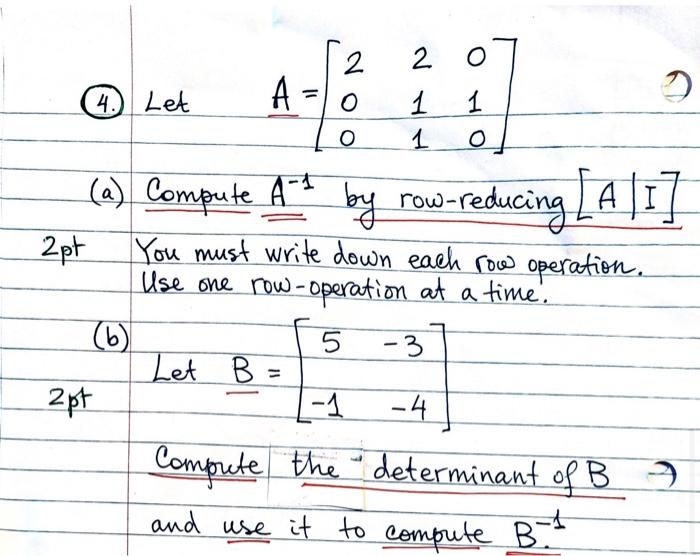 4. Let A = [2 2 0
0 1 1
0 1 0]
(a) Compute A⁻¹ by row-reducing [A | I]
2pt You must write down each row operation.
Use one row-operation at a time.
(b) Let B = [5 -3
-1 -4]
2pt
Compute the determinant of B
and use it to compute B⁻¹.